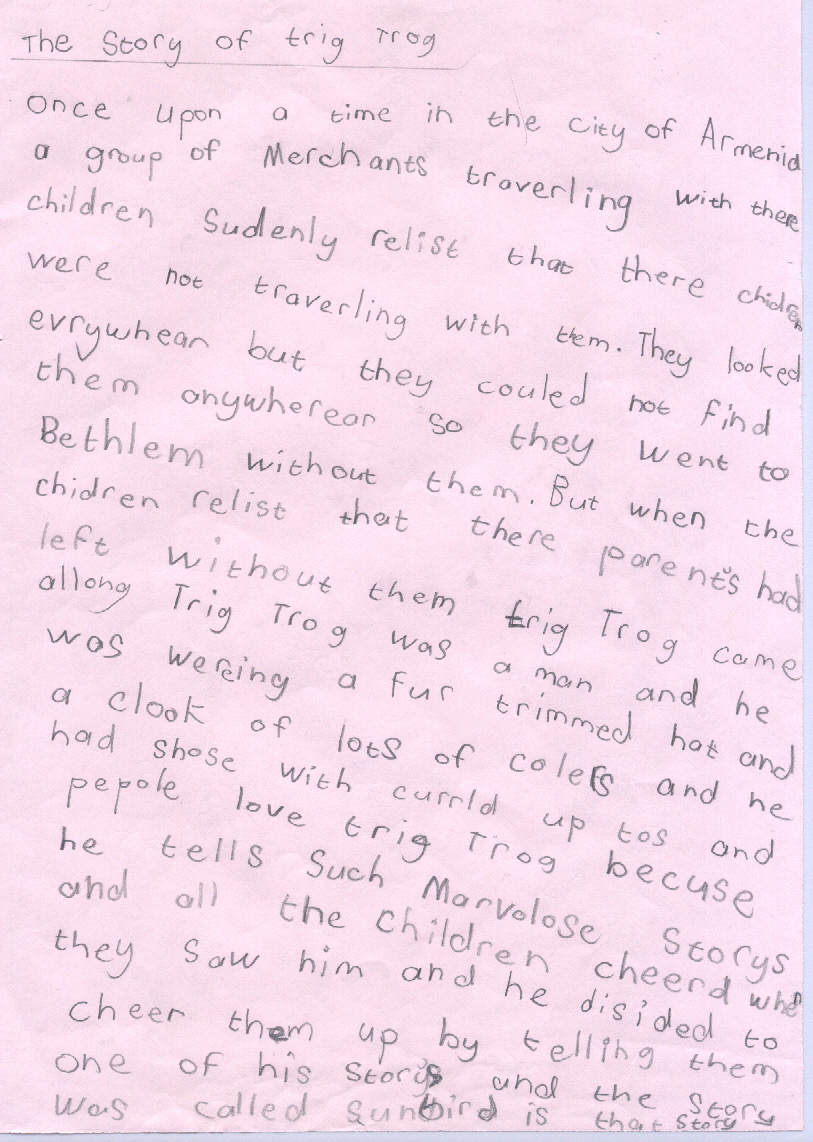 The Story of trig Trog
Once upon a time in the city of Armenia
a group of Merchants traverling with there
children Suddenly relist that there chidren
were not traverling with them. They looked
evrywhear but they couled not find
them onywherear so they went to
Bethlem without them. But when the
chidren relist that there parent's had
left without them trig Trog came
allong Trig Trog was a man and he
was wereing a fur trimmed hat and
a clook of lots of colers and he
had shose with currld up tos and
pepole love trig Trog becuse
he tells Such Marvolose Storys
and all the children cheerd when
they saw him and he disided to
cheer them up by telling them
one of his storys and the story
was called Sunbird is that story